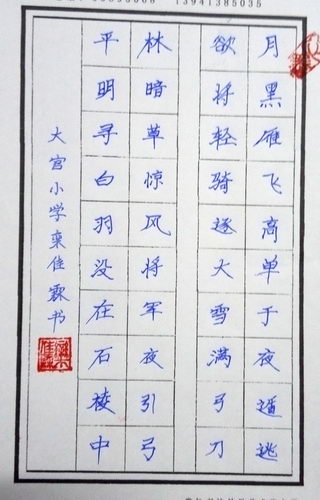 13941385035
月黑雁飞高单于夜遁逃
欲将轻骑逐大雪满弓刀
林暗草惊风将军夜引弓
平明寻白羽没在石棱中
大宫小学栾佳霖书